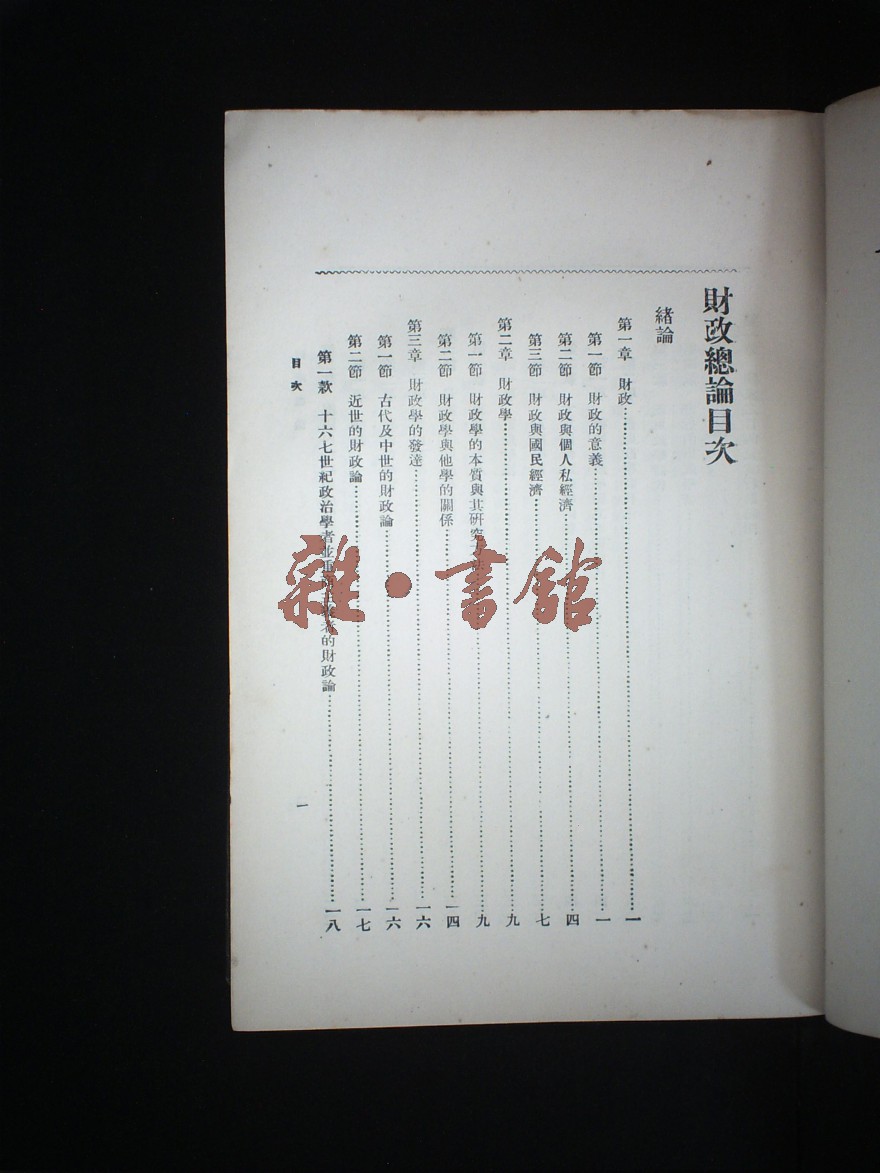 財政總論目次
緒論
第一章 財政……一
第一節 財政的意義……一
第二節 財政與個人私經濟……四
第三節 財政與國民經濟……七
第二章 財政學……九
第一節 財政學的本質與其研究……九
第二節 財政學與他學的關係……一四
第三章 財政學的發達……一六
第一節 古代及中世的財政論……一六
第二節 近世的財政論……一七
第一款 十六七世紀政治學者並重 者的財政論……一八
目次
一
雜·書館